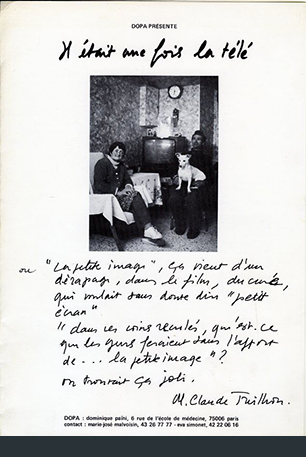 DOPA PRÉSENTE
Il était une fois la télé
ou "La petite image", ça vient d'un
dérapage, dans le film, du curé,
qui voulait sans doute dire "petit
écran"
"dans ces coins reculés, qu'est-ce
que les gens feraient sans l'apport
de... la petite image"?
on trouvait ça joli.
M. Claude Treilhou.
DOPA : dominique païni, 6 rue de l'école de médecine, 75006 paris
contact : marie-josé malvoisin, 43 26 77 77 - eva simonet, 42 22 06 16